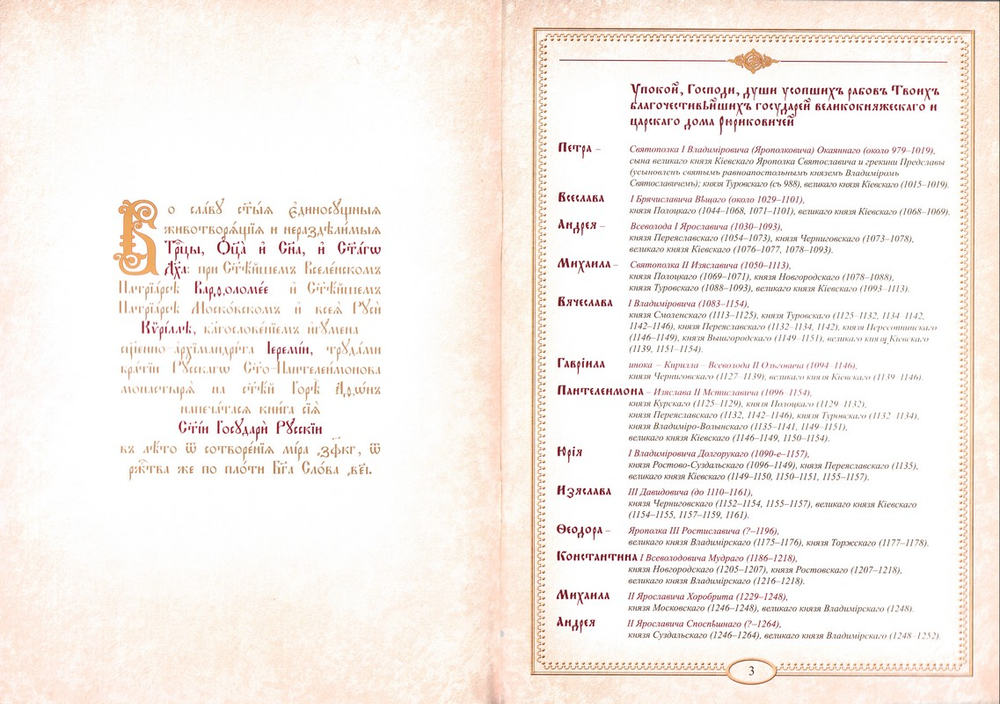 Во славу ст҃ыѧ єдиносущныѧ
животворѧщіѧ и нераздѣлимыѧ
Трⷪ҇цы, Ѻц҃а и҆ Сн҃а, и҆ Ст҃агѡ
Дх҃а: при Ст҃ѣйшемъ Вселе́нскомъ
Патрїа́рсѣ Варѳоломе́е и҆ Ст҃ѣйшемъ
Патрїа́рсѣ Моско́вскомъ и҆ всеѧ̀ Русѝ
Кѷрі́ллѣ, бл҃гослове́нїемъ и҆гу́мена
сщ҃е́нно-а҆рхїмандрі́та Іереми́и, труда́ми
бра́тїи Ру́сскагѡ Ст҃о-Пантелеи́монова
монастырѧ̀ на ст҃ѣ́й Горѣ̀ А҆ѳѡ́нъ
напеча́тасѧ кни́га сїѧ̀
Ст҃і́и Госуда́ри Ру́сскїи
въ лѣ́то ѿ сотворе́нїѧ мі́ра ҂зфкг, ѿ
рж҃тва́ же по пло́ти Бг҃а Сло́ва ҂вєі.
Упокой, Господи, души усопшихъ рабовъ Твоихъ
благочестивѣйшихъ государей великокняжескаго и
царскаго дома Рюриковичей
Петра – Святополка I Владиміровича (Ярополковича) Окаяннаго (около 979–1019),
сына великаго князя Кіевскаго Ярополка Святославича и грекини Предславы
(усыновленъ святымъ равноапостольнымъ княземъ Владиміромъ
Святославичемъ); князя Туровскаго (съ 988), великаго князя Кіевскаго (1015–1019).
Всеслава I Брячиславича Вѣщаго (около 1029–1101),
князя Полоцкаго (1044–1068, 1071–1101), великаго князя Кіевскаго (1068–1069).
Андрея – Всеволода I Ярославича (1030–1093),
князя Переяславскаго (1054–1073), князя Черниговскаго (1073–1078),
великаго князя Кіевскаго (1076–1077, 1078–1093).
Михаила – Святополка II Изяславича (1050–1113),
князя Полоцкаго (1069–1071), князя Новгородскаго (1078–1088),
князя Туровскаго (1088–1093), великаго князя Кіевскаго (1093–1113).
Вячеслава I Владиміровича (1083–1154),
князя Смоленскаго (1113–1125), князя Туровскаго (1125–1132, 1134–1142,
1142–1146), князя Переяславскаго (1132–1134, 1142), князя Пересопницкаго
(1146–1149), князя Вышгородскаго (1149–1151), великаго князя Кіевскаго
(1139, 1151–1154).
Гавріила инока – Кирилла – Всеволода II Ольговича (1094–1146),
князя Черниговскаго (1127–1139), великаго князя Кіевскаго (1139–1146).
Пантелеимона – Изяслава II Мстиславича (1096–1154),
князя Курскаго (1125–1129), князя Полоцкаго (1129–1132),
князя Переяславскаго (1132, 1142–1146), князя Туровскаго (1132–1134),
князя Владиміро-Волынскаго (1135–1141, 1149–1151),
великаго князя Кіевскаго (1146–1149, 1150–1154).
Юрія I Владиміровича Долгорукаго (1090-е–1157),
князя Ростово-Суздальскаго (1096–1149), князя Переяславскаго (1135),
великаго князя Кіевскаго (1149–1150, 1150–1151, 1155–1157).
Изяслава III Давидовича (до 1110–1161),
князя Черниговскаго (1152–1154, 1155–1157), великаго князя Кіевскаго
(1154–1155, 1157–1159, 1161).
Ѳеодора – Ярополка III Ростиславича (?–1196),
великаго князя Владимірскаго (1175–1176), князя Торжскаго (1177–1178).
Константина I Всеволодовича Мудраго (1186–1218),
князя Новгородскаго (1205–1207), князя Ростовскаго (1207–1218),
великаго князя Владимірскаго (1216–1218).
Михаила II Ярославича Хоробрита (1229–1248),
князя Московскаго (1246–1248), великаго князя Владимірскаго (1248).
Андрея II Ярославича Споспѣшнаго (?–1264),
князя Суздальскаго (1246–1264), великаго князя Владимірскаго (1248–1252).
3